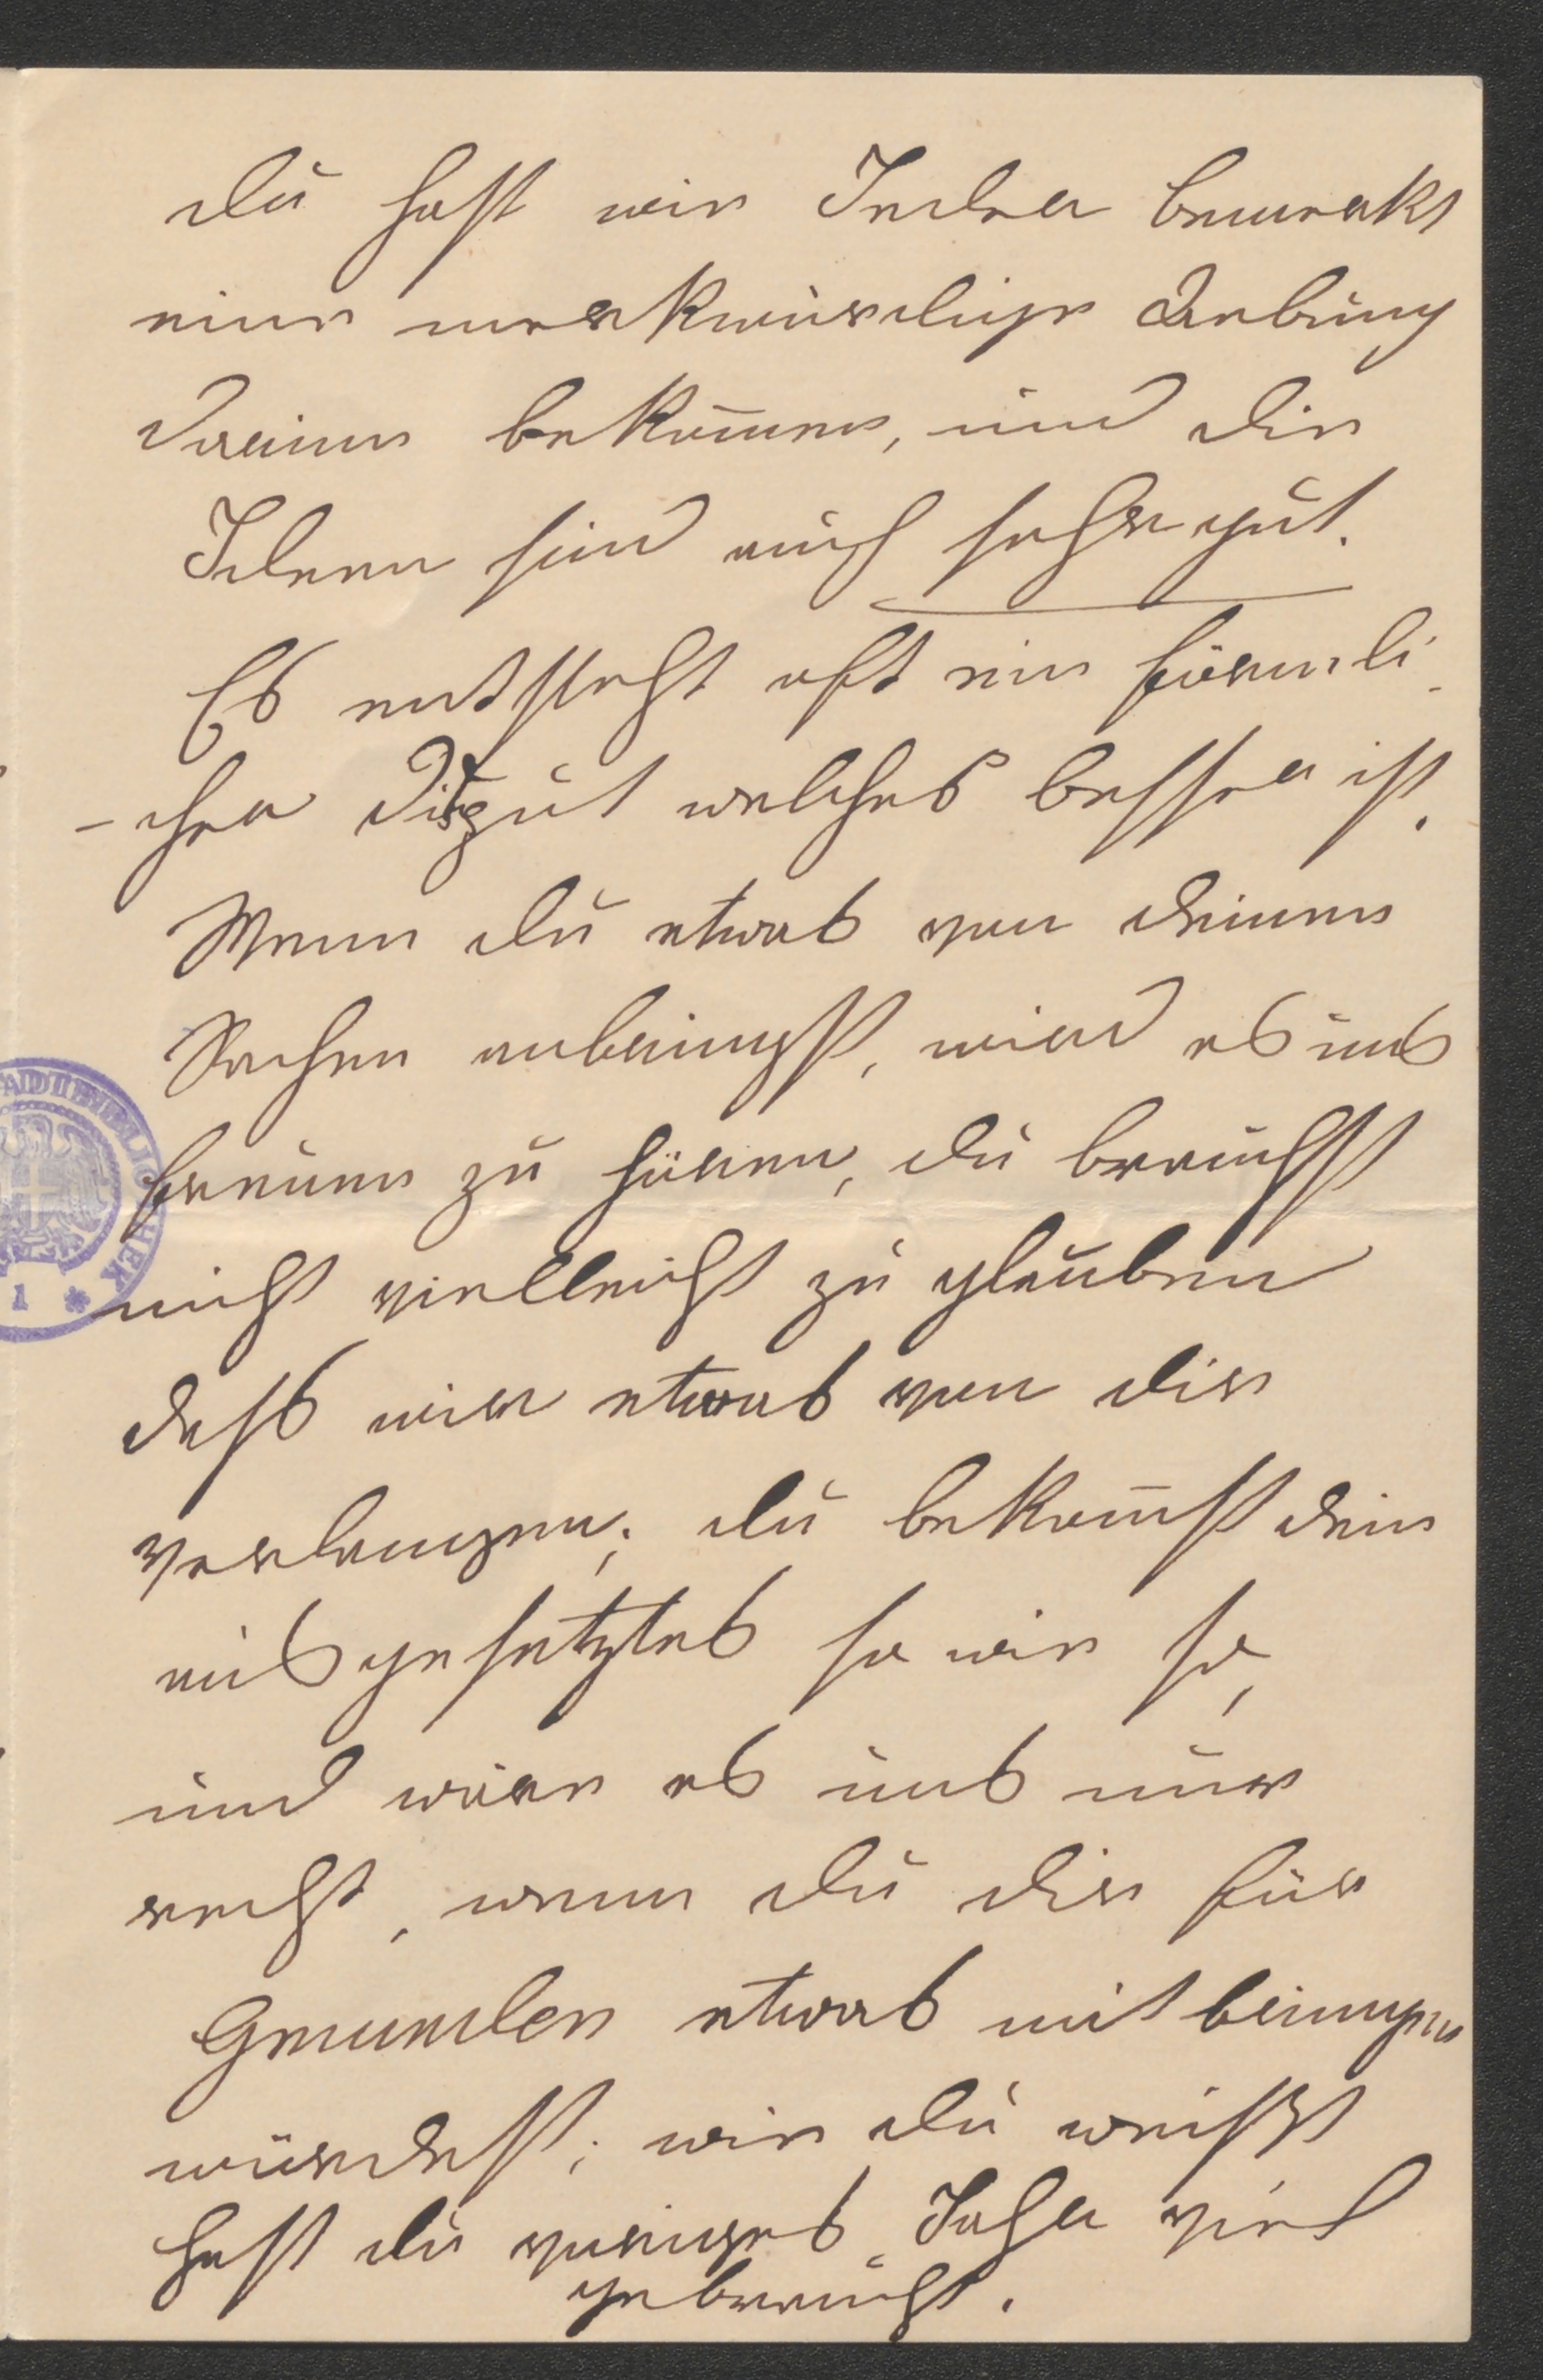 du hast wie Jeder bemerkt
eine merkwürdige Uebung
darinn bekom̄en, und die
Ideen sind auch sehr gut.
Es entsteht oft ein förmli
-cher Disput welches besser ist.
Wenn du etwas von deinen
Sachen anbringst, wird es uns
freuen zu hören, du brauchst
nicht vielleicht zu glauben
dass wir etwas von dir
verlangen; du bekom̄st dein
ausgesetztes so wie so,
und wäre es uns nur
recht, wenn du dir für
Gmunden etwas mit bringen
würdest; wie du weißt
hast du voriges Jahr viel
gebraucht.